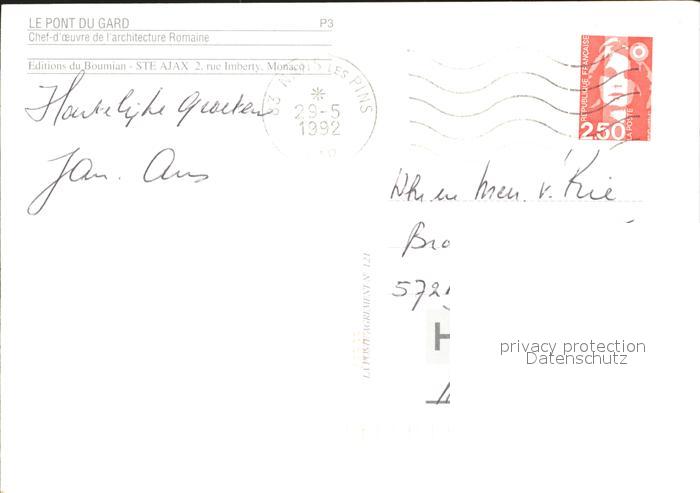 LE PONT DU GARD P3
Chef-d'œuvre de l'architecture Romaine
Editions du Boumian - STE AJAX 2, rue Imberty, Monaco
Hartelijke Groeten
Jan. Ans
LES PINS
29-5
1992
REPUBLIQUE FRANÇAISE
LA POSTE
2,50
v. Rie
Bro
572
H
LA POSTE AGREMENT N° 121
privacy protection
Datenschutz